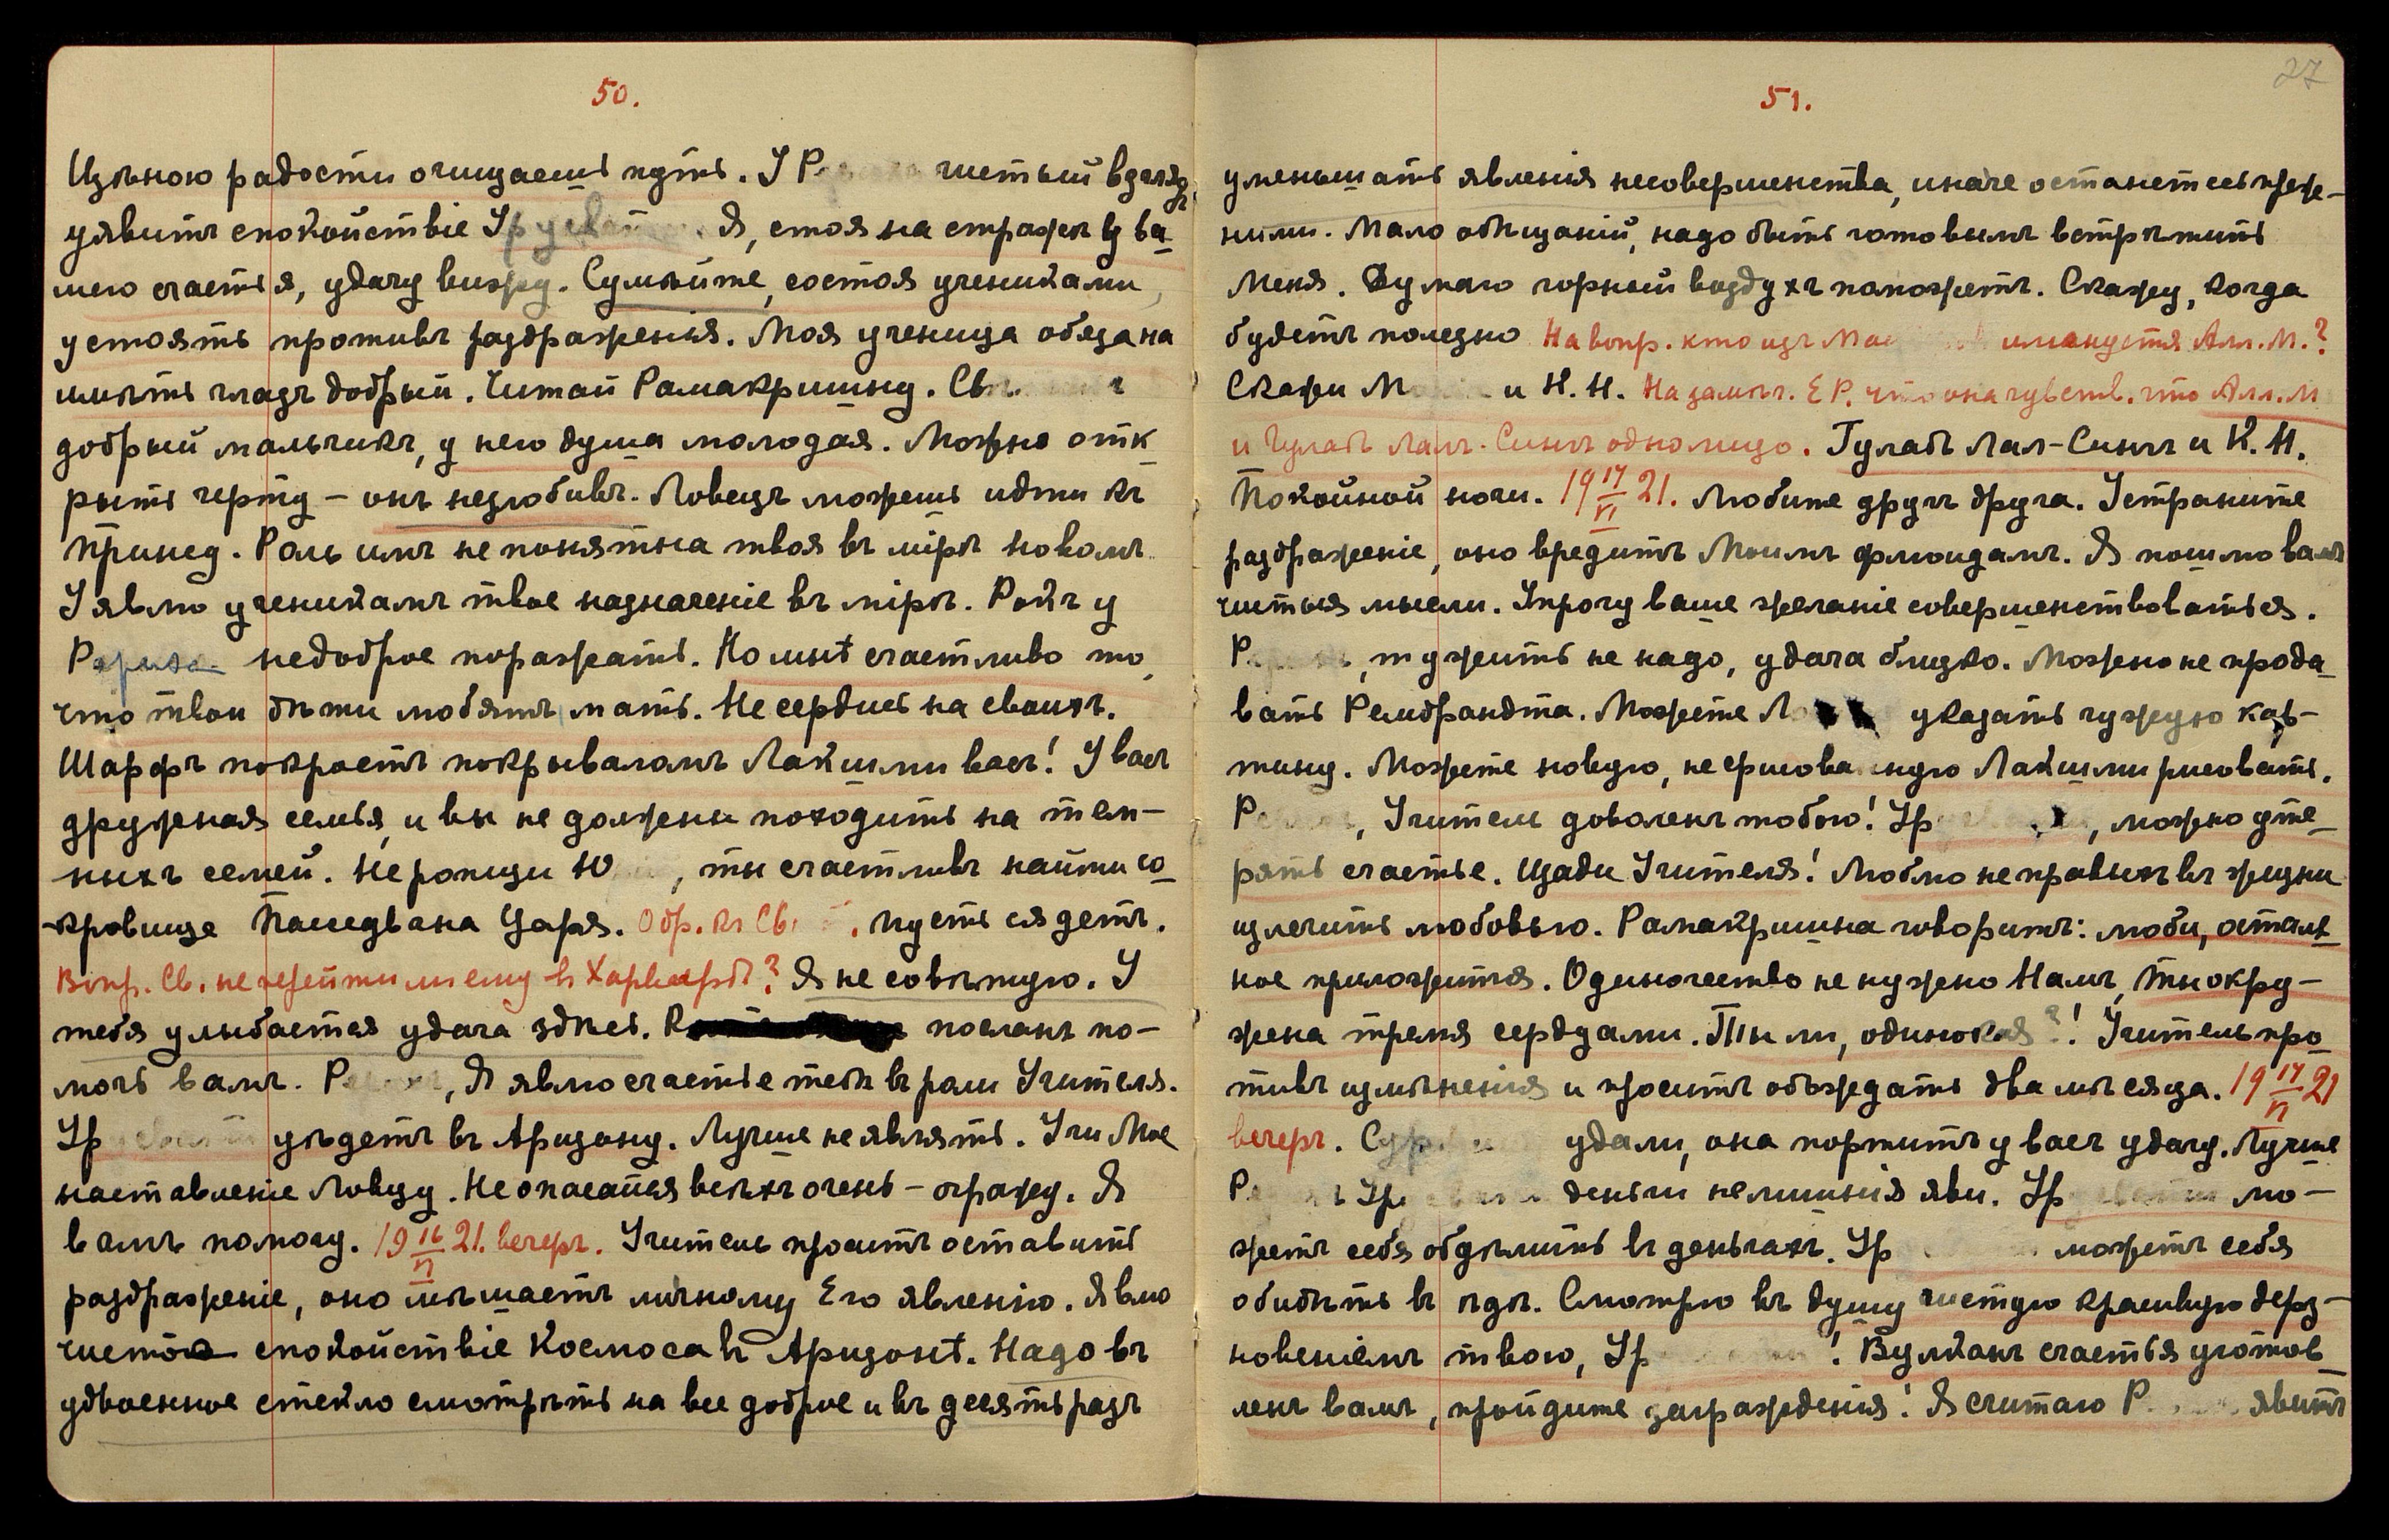 50.
Цѣною радости очищаешь путь. У Р чистый взглядъ
уявитъ спокойствіе Ур Я, стоя на стражѣ ва-
шего счастья, удачу вижу. Сумѣйте, состоя учениками,
устоять противъ раздраженія. Моя ученица обязана
имѣть глазъ добрый. Читай Рамакришну. Св
добрый мальчикъ, у него душа молодая. Можно отк
рыть черту – онъ незлобивъ. Ловецъ можешь идти къ
Принцу. Роль имъ не понятна твоя въ мірѣ новомъ.
Уявлю ученикамъ твое назначеніе въ мірѣ. Рокъ у
Р недоброе поражать. Но мнѣ счастливо то,
что твои дѣти любятъ мать. Не сердись на своихъ.
Шарфъ покроетъ покрываломъ Лакшми васъ! У васъ
дружная семья, и вы не должны походить на тем-
ныхъ семей. Не ропщи Ю , ты счастливъ найти со-
кровище Царя. Обр. къ Св. Пусть сядетъ.
Вопр. Св. не перейти ли ему въ Харвардъ? Я не совѣтую. У
тебя улыбается удача здѣсь. посланъ по-
мочь вамъ. Р , Я явлю счастье тебѣ въ раи Учителя.
Ур уѣдетъ въ Аризону. Лучше не являть. Учи Мое
наставленіе Ловцу. Не опасайся всѣхъ очень – огражу. Я
вамъ помогу. 19 16/VI 21. вечеръ. Учитель проситъ оставить
раздраженіе, оно мѣшаетъ личному Его явленію. Явлю
чистое спокойствіе Космоса въ Аризонѣ. Надо въ
удвоенное стекло смотрѣть на все доброе и въ десять разъ
27
51.
уменьшать явленія несовершенства, иначе останетесь преж-
ними. Мало обѣщаній, надо быть готовымъ встрѣтить
Меня. Думаю горный воздухъ поможетъ. Скажу, когда
будетъ полезно На вопр. кто изъ Ма именуется Алл. М.?
Скажи М и К. Н. На замѣч. Е Р. что она чувств. что Алл. М
и Гулабъ Лалъ-Сингъ одно лицо. Гулабъ Лал-Сингъ и К. Н.
Покойной ночи. 19 17/VI 21. Любите другъ друга. Устраните
раздраженіе, оно вредитъ Моимъ флюидамъ. Я пошлю вамъ
чистыя мысли. Упрочу ваше желаніе совершенствоваться.
Р , тужить не надо, удача близко. Можно не прода-
вать Рембрандта. Можете Л указать чужую кар-
тину. Можете новую, не срисованную Лакшми рисовать.
Р , Учитель доволенъ тобою! Ур , можно уте-
рять счастье. Щади Учителя! Люблю неправыхъ въ жизни
излечить любовью. Рамакришна говоритъ: люби, осталь-
ное приложится. Одиночество не нужно Намъ, ты окру-
жена тремя сердцами. Ты ли, одинокая?! Учитель про-
тивъ измѣненія и проситъ обождать два мѣсяца. 19 17/VI 21
вечеръ. Сур удали, она портитъ у васъ удачу. Лучше
Р Ур деньги нелишнія яви. Ур мо-
жетъ себя обдѣлить въ деньгахъ. Ур можетъ себя
обидѣть въ ѣдѣ. Смотрю въ душу чистую красивую дерз-
новеніемъ твою, Ур ! Вулканъ счастья уготов-
ленъ вамъ, пройдите загражденія! Я считаю Р явитъ